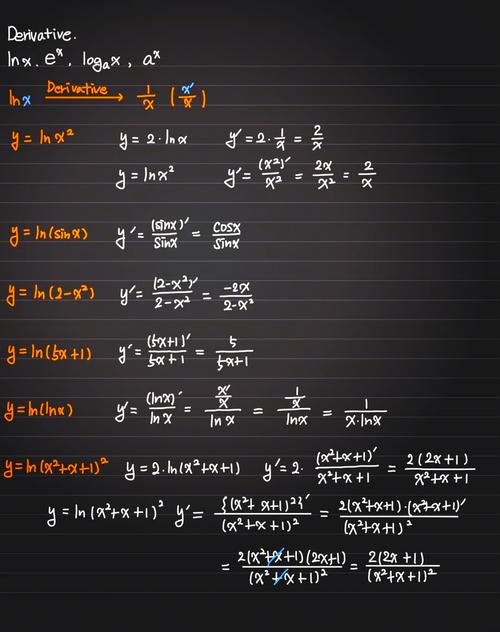 Derivative.
lnx. eˣ, logₐx, aˣ
lnx Derivative → 1/x (x′/x)
y = lnx² y = 2·lnx y′ = 2·1/x = 2/x
y = lnx² y′ = (x²)′/x² = 2x/x² = 2/x
y = ln(sinx) y′ = (sinx)′/sinx = cosx/sinx
y = ln(2-x²) y′ = (2-x²)′/(2-x²) = -2x/(2-x²)
y = ln(5x+1) y′ = (5x+1)′/(5x+1) = 5/(5x+1)
y = ln(lnx) y′ = (lnx)′/lnx = (x′/x)/lnx = (1/x)/lnx = 1/(x·lnx)
y = ln(x²+x+1)² y = 2·ln(x²+x+1) y′ = 2·(x²+x+1)′/(x²+x+1) = 2(2x+1)/(x²+x+1)
y = ln(x²+x+1)² y′ = {(x²+x+1)²}′/(x²+x+1)² = 2(x²+x+1)·(x²+x+1)′/(x²+x+1)²
= 2(x²+x+1)(2x+1)/(x²+x+1)² = 2(2x+1)/(x²+x+1)²